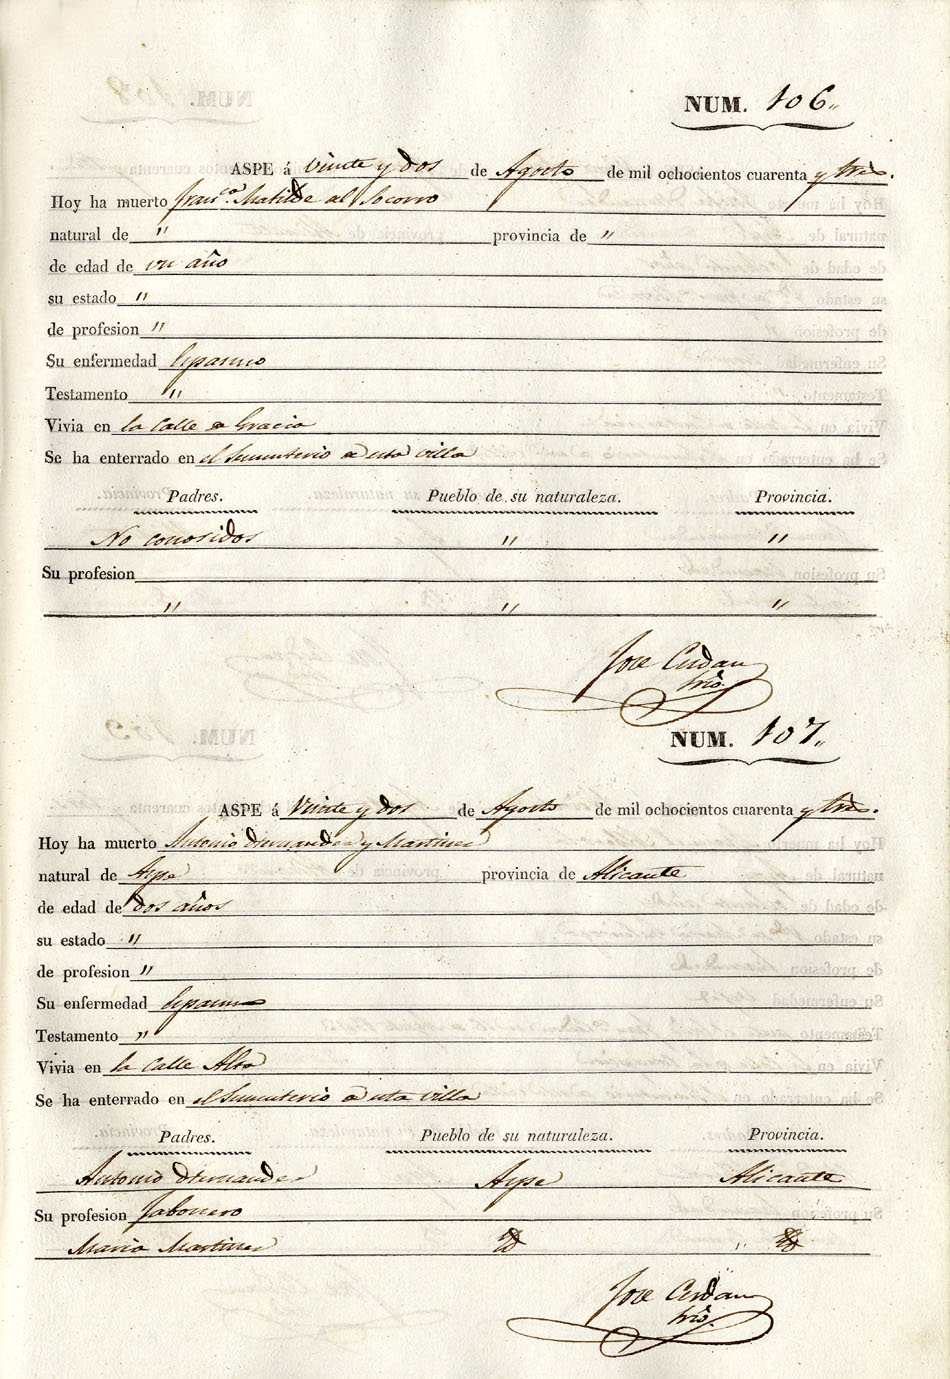 NUM. 106„
ASPE á Veinte y dos de Agosto de mil ochocientos cuarenta y tres.
Hoy ha muerto Franca. Matilde al Socorro
natural de " provincia de "
de edad de un año
su estado "
de profesion "
Su enfermedad Espasmo
Testamento "
Vivia en la Calle a Gracia
Se ha enterrado en el Sementerio a esta villa
Padres. Pueblo de su naturaleza. Provincia.
No conosidos " "
Su profesion
" " "
Jose Cerdan
Srio.
NUM. 107„
ASPE á Veinte y dos de Agosto de mil ochocientos cuarenta y tres.
Hoy ha muerto Antonio Hernandez y Martinez
natural de Aspe provincia de Alicante
de edad de dos años
su estado "
de profesion "
Su enfermedad Espasmo
Testamento "
Vivia en la Calle Alta
Se ha enterrado en el Sementerio a esta villa
Padres. Pueblo de su naturaleza. Provincia.
Antonio Hernandez Aspe Alicante
Su profesion Jabonero
Maria Martinez
Jose Cerdan
Srio.